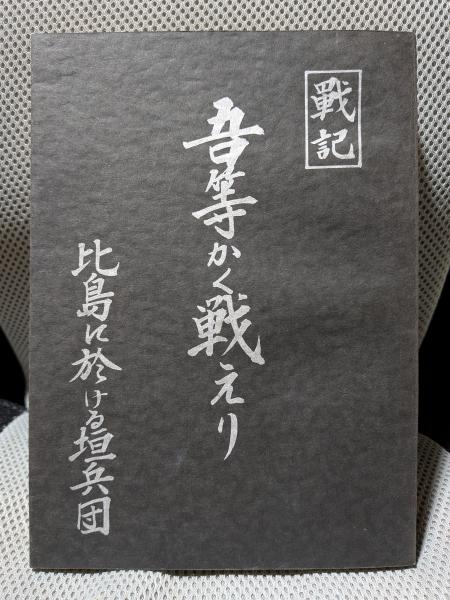 戰記
吾等かく戦えり
比島に於ける垣兵団